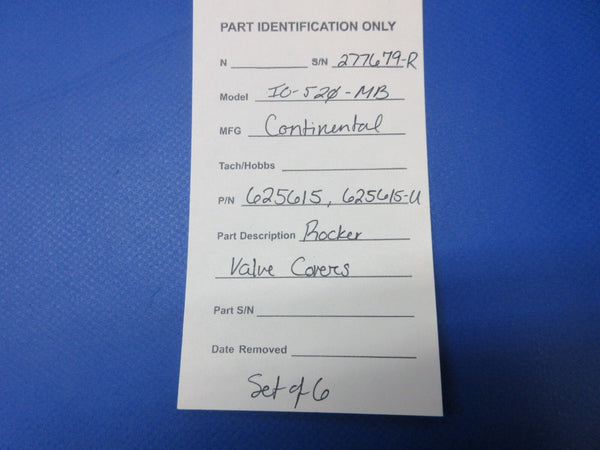 PART IDENTIFICATION ONLY
N S/N 277679-R
Model IO-520-MB
MFG Continental
Tach/Hobbs
P/N 625615, 625615-U
Part Description Rocker
Valve Covers
Part S/N
Date Removed
Set of 6